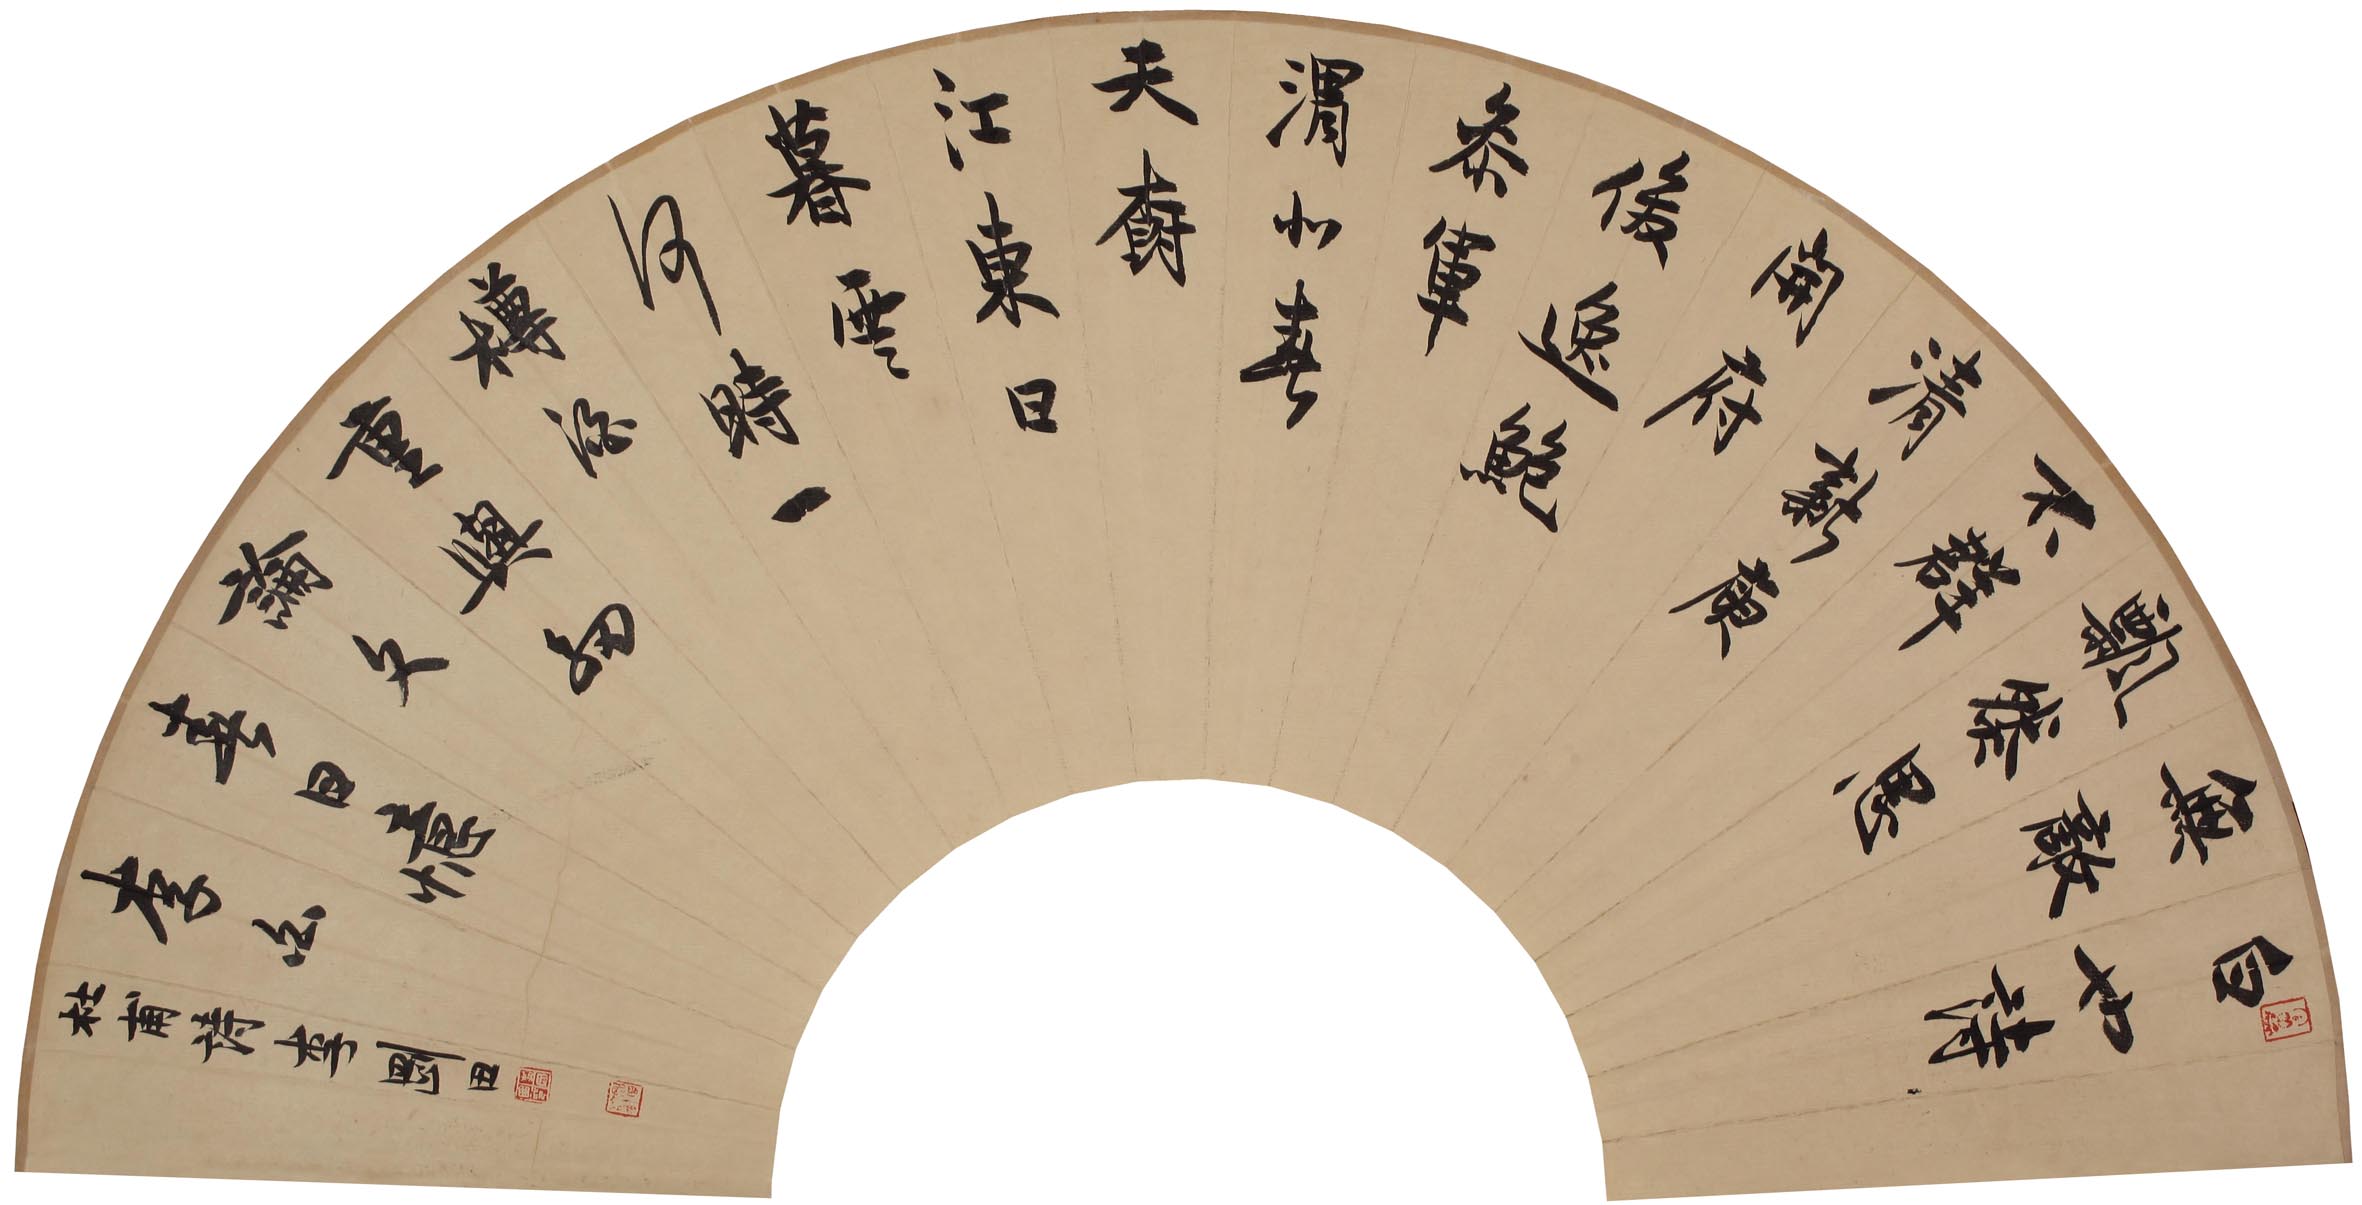 白也詩
無敵
飄然思
不群
清新庾
開府
俊逸鮑
參軍
渭北春
天樹
江東日
暮雲
何時一
樽酒
重與細
論文
春日憶
李白
杜甫詩李剛田